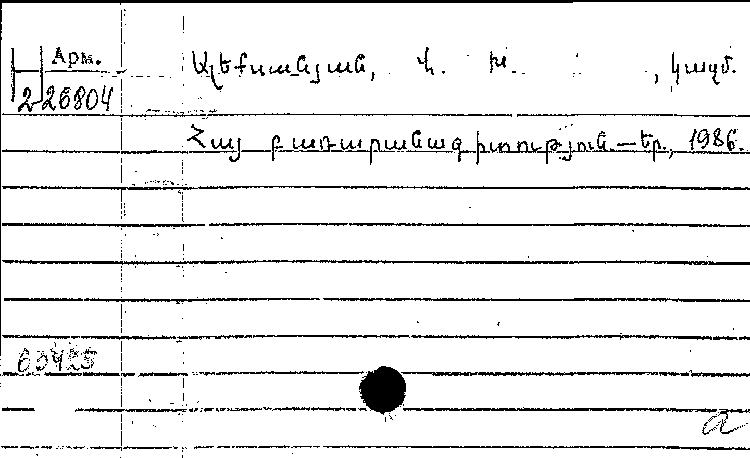 Арм.
2-26804
Ալեքսանյան, Վ. Խ. , կազմ.
Հայ բառարանագիտություն.—Եր., 1986.
63425
a